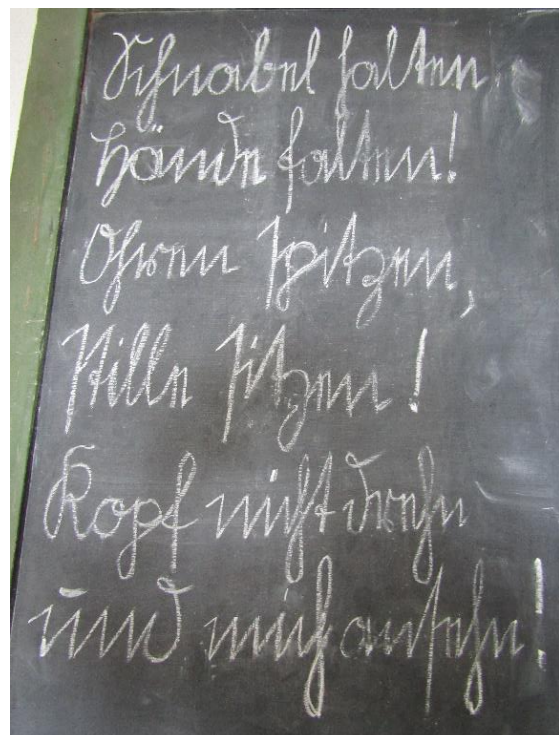 Schnabel halten,
Hände falten!
Ohren spitzen,
stille sitzen!
Kopf nicht drehn
und mich ansehn!